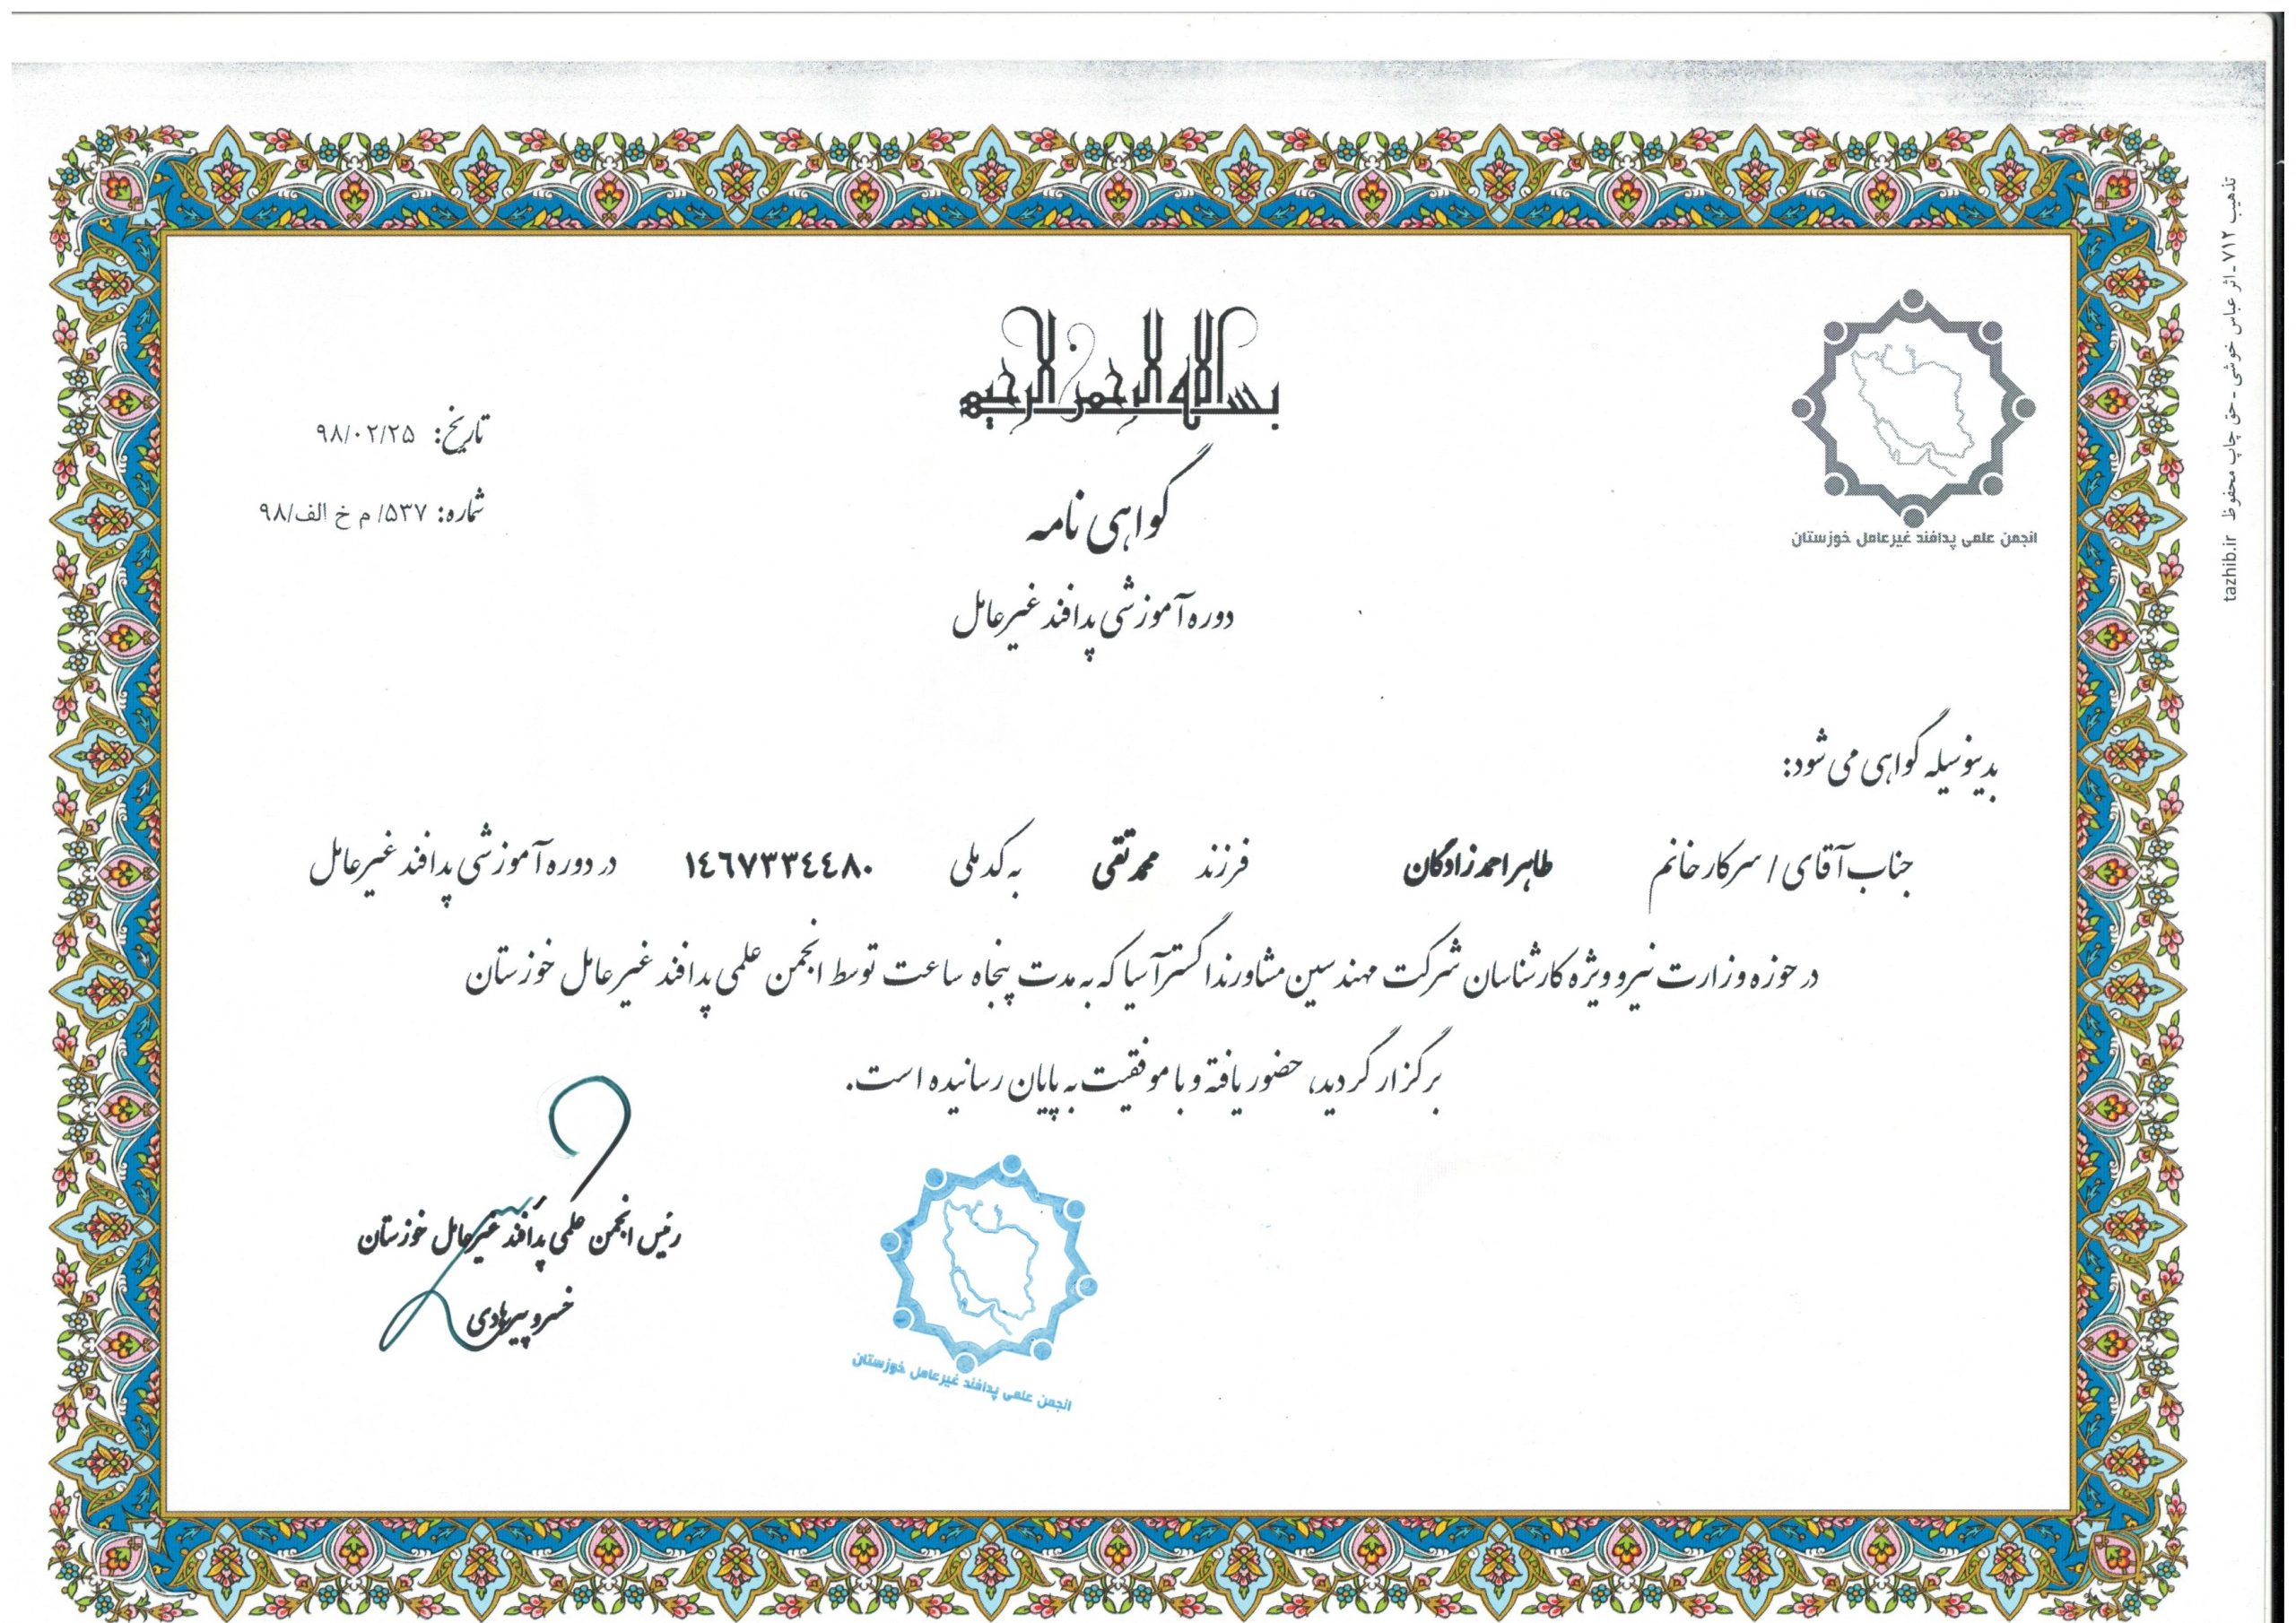 بسم الله الرحمن الرحیم
انجمن علمی پدافند غیرعامل خوزستان
تاریخ: ۹۸/۰۲/۲۵
شماره: ۵۳۷/ م خ الف/۹۸
گواهی نامه
دوره آموزشی پدافند غیرعامل
بدینوسیله گواهی می شود:
جناب آقای / سرکار خانم طاہر احمدزادگان فرزند محمدتقی به کد ملی ۱٤٦٧۳۳٤٤۸۰ در دوره آموزشی پدافند غیرعامل
در حوزه وزارت نیرو ویژه کارشناسان شرکت مهندسین مشاور ندا گستر آسیا که به مدت پنجاه ساعت توسط انجمن علمی پدافند غیرعامل خوزستان
برگزار گردید، حضور یافته و با موفقیت به پایان رسانیده است.
رئیس انجمن علمی پدافند غیرعامل خوزستان
خسرو پیرهادی
انجمن علمی پدافند غیرعامل خوزستان
تذهیب ۷۱۲ - اثر عباس خوشی - حق چاپ محفوظ tazhib.ir